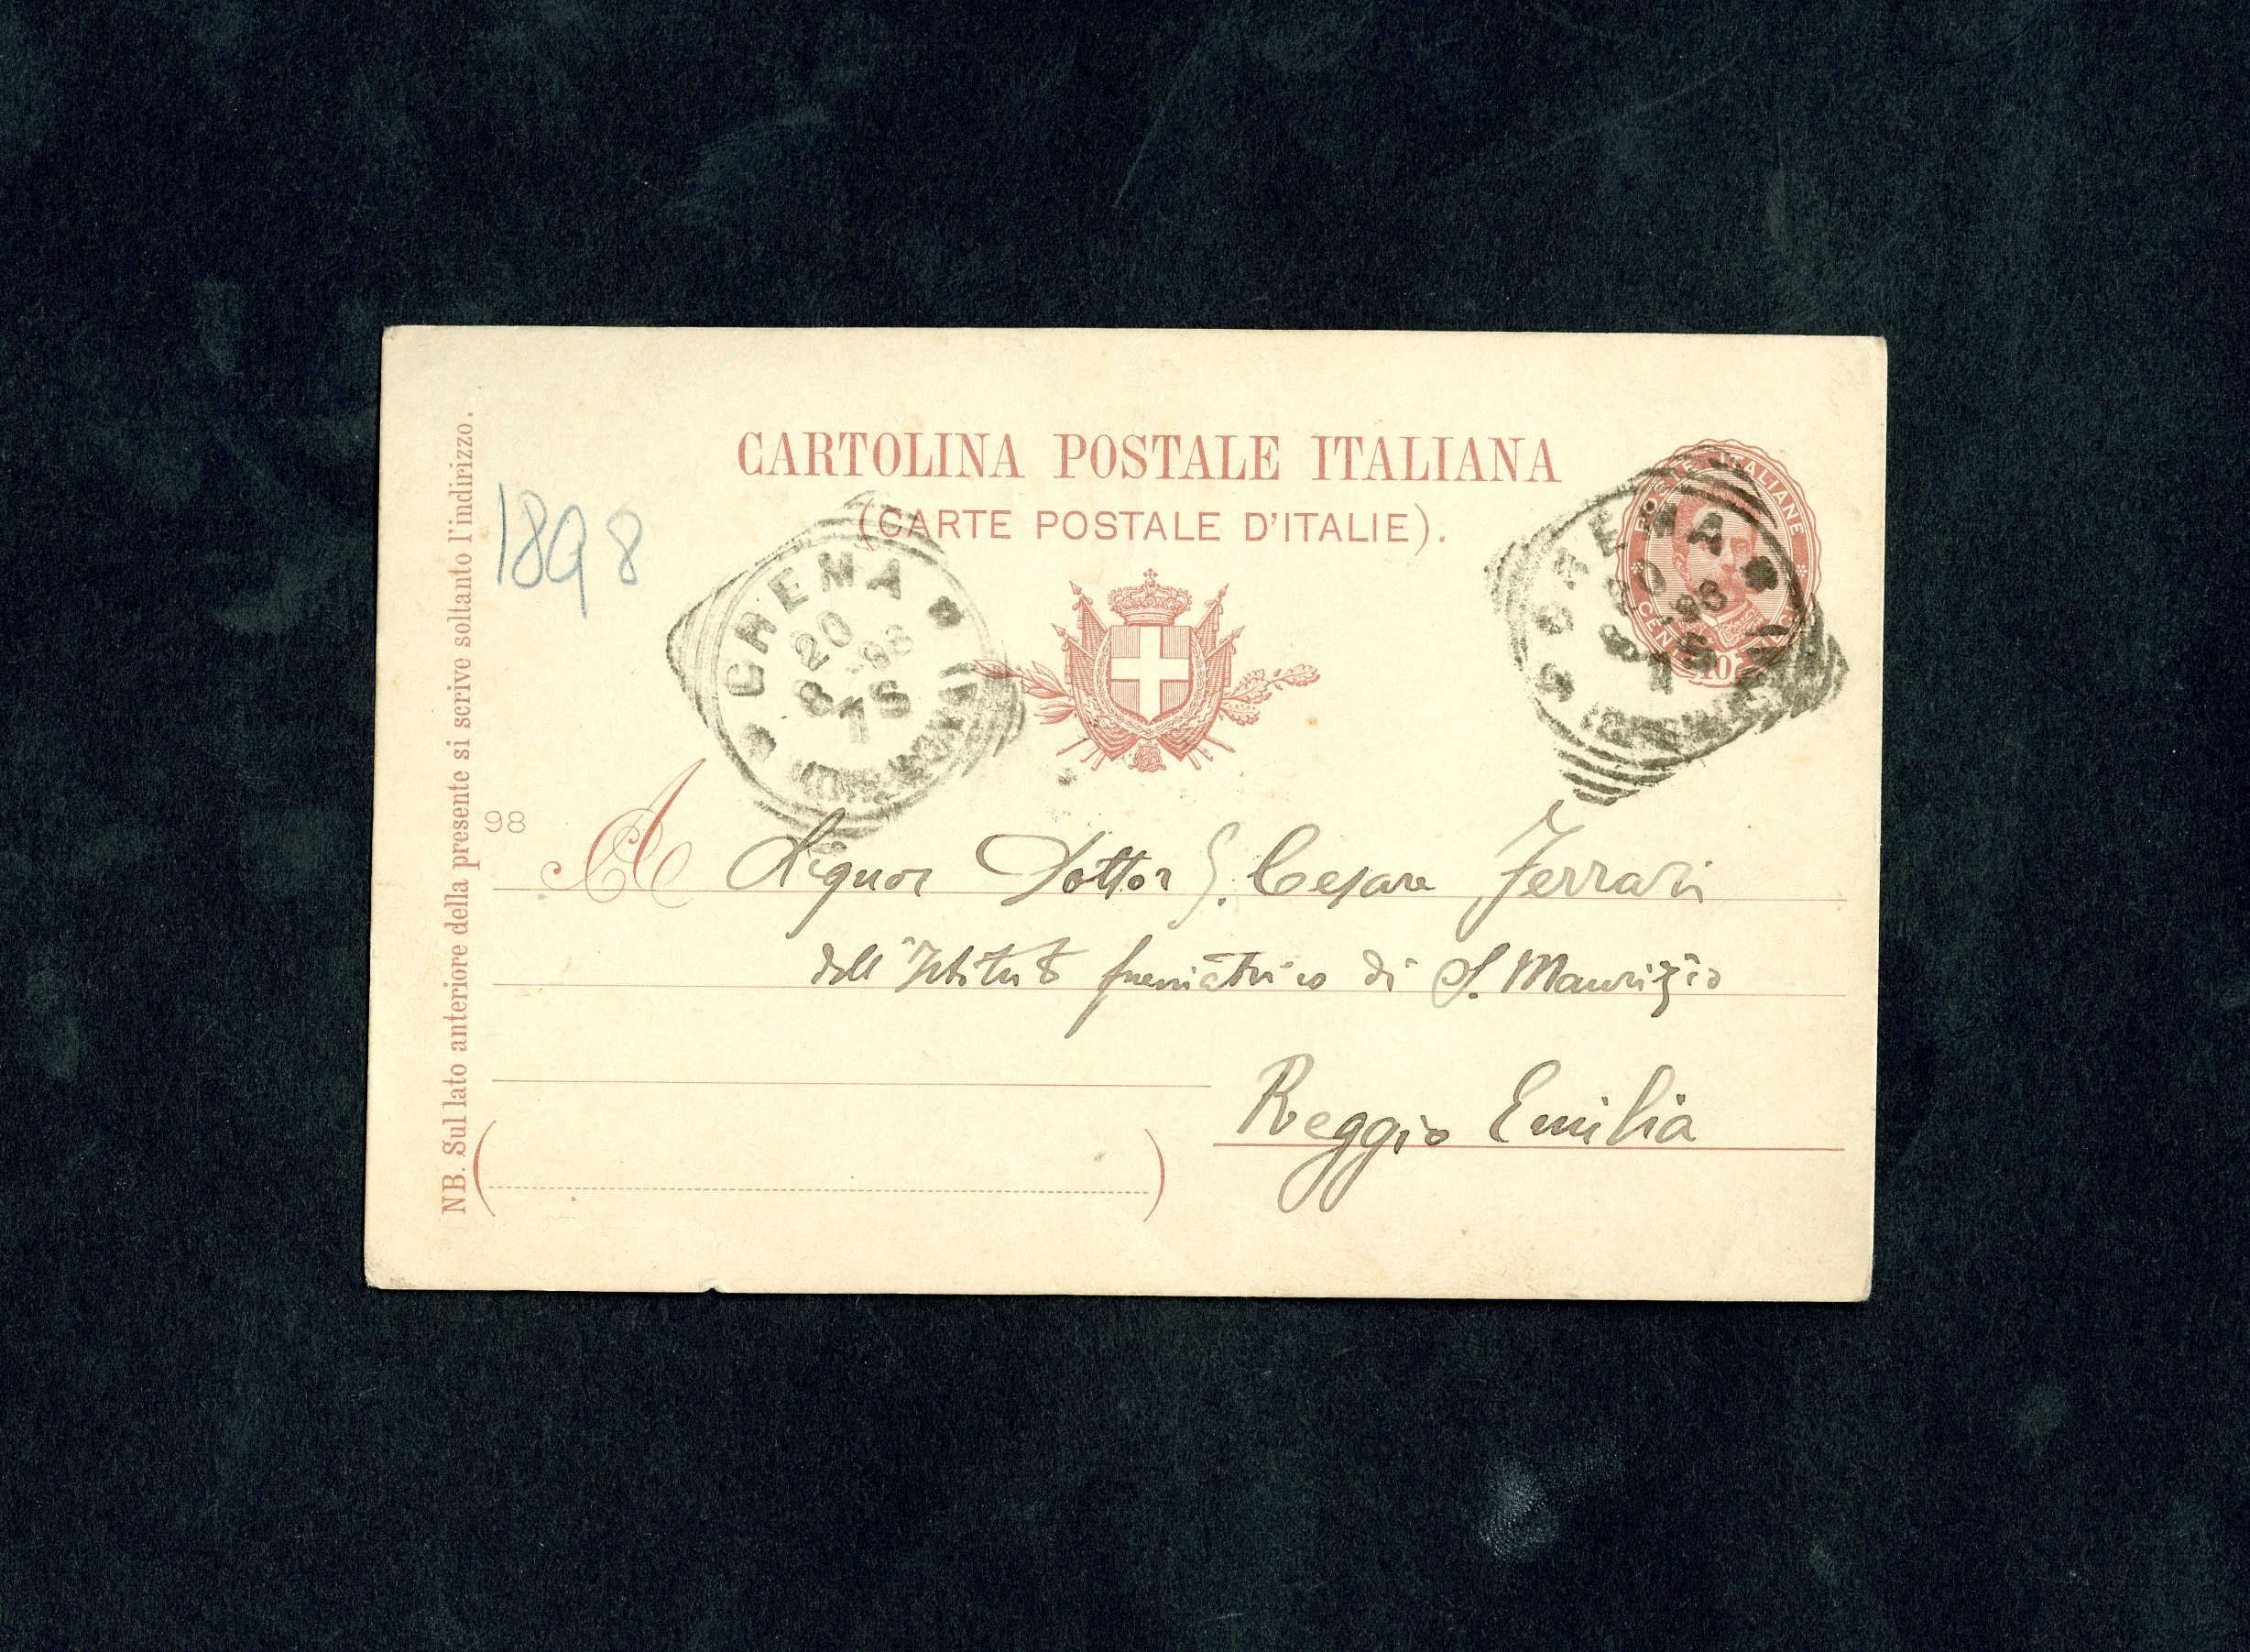 CARTOLINA POSTALE ITALIANA
(CARTE POSTALE D'ITALIE).
NB. Sul lato anteriore della presente si scrive soltanto l'indirizzo.
1898
CREMA
20
8 -98
7S
POSTE ITALIANE
10
CREMA
20
8 -98
7S
98
A Signor Dottor G. Cesare Ferrari
dell'Istituto freniatrico di S. Maurizio
Reggio Emilia